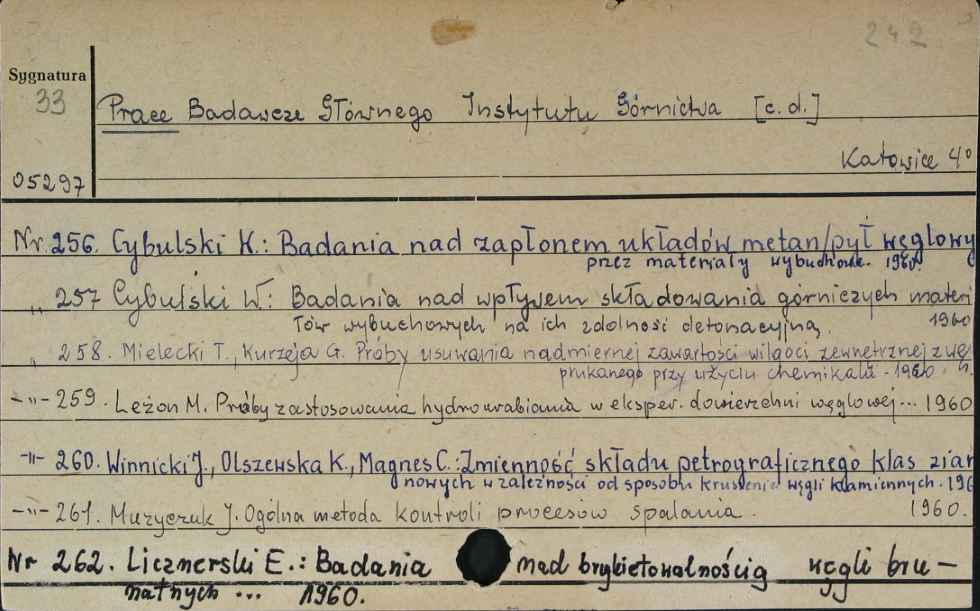 242
Sygnatura
33
Prace Badawcze Głównego Instytutu Górnictwa [c.d.]
Katowice 4°
05297
Nr 256. Cybulski W.: Badania nad zapłonem układów metan/pył węglowy
przez materiały wybuchowe. 1960.
„ 257 Cybulski W: Badania nad wpływem składowania górniczych materi
łów wybuchowych na ich zdolność detonacyjną. 1960
„ 258. Mielecki T., Kurzeja G. Próby usuwania nadmiernej zawartości wilgoci zewnętrznej z wę
płukanego przy użyciu chemikalii. 1960.
-"- 259. Leżoń M. Próby zastosowania hydrourabiania w eksper. dowierzchni węglowej... 1960
-"- 260. Winnicki J., Olszewska K., Magnes C.: Zmienność składu petrograficznego klas ziar
nowych w zależności od sposobu kruszenia węgli kamiennych. 196
-"- 261. Muzyczuk J. Ogólna metoda kontroli procesów spalania. 1960.
Nr 262. Licznerski E.: Badania nad brykietowalnością węgli bru-
natnych ... 1960.